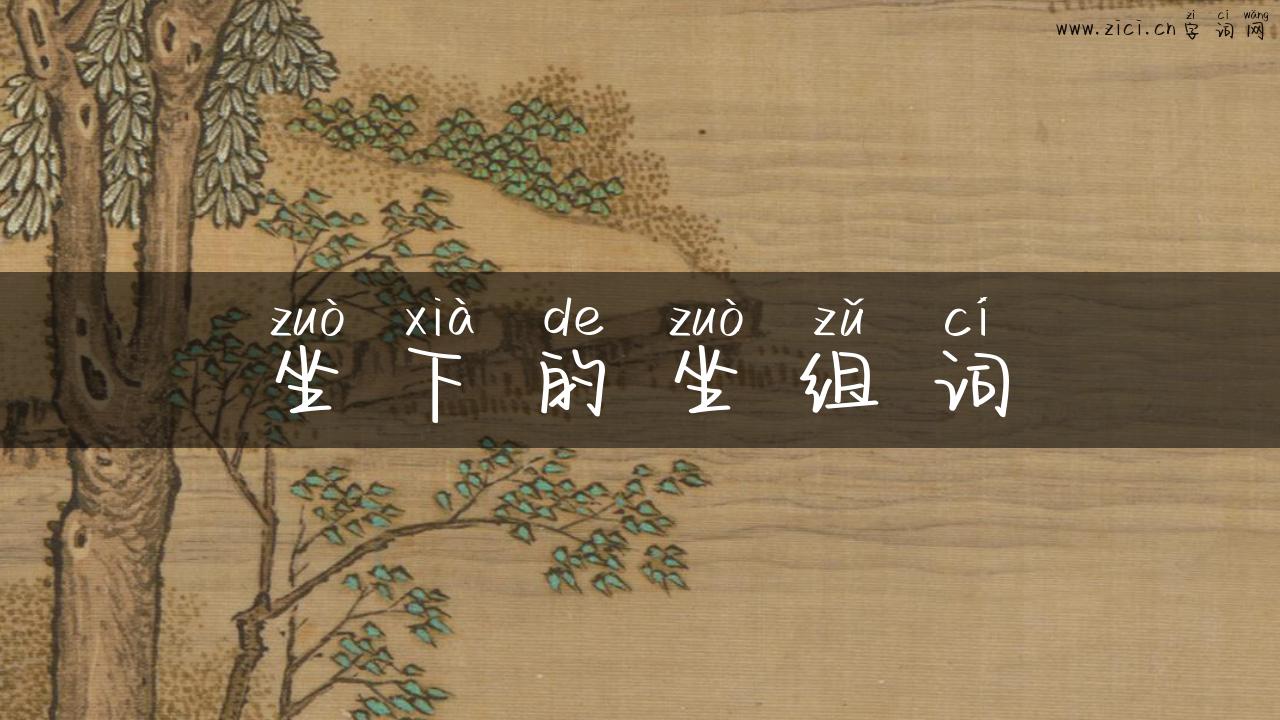 zì cí wǎng
www.zici.cn 字词网
zuò xià de zuò zǔ cí
坐下的坐组词